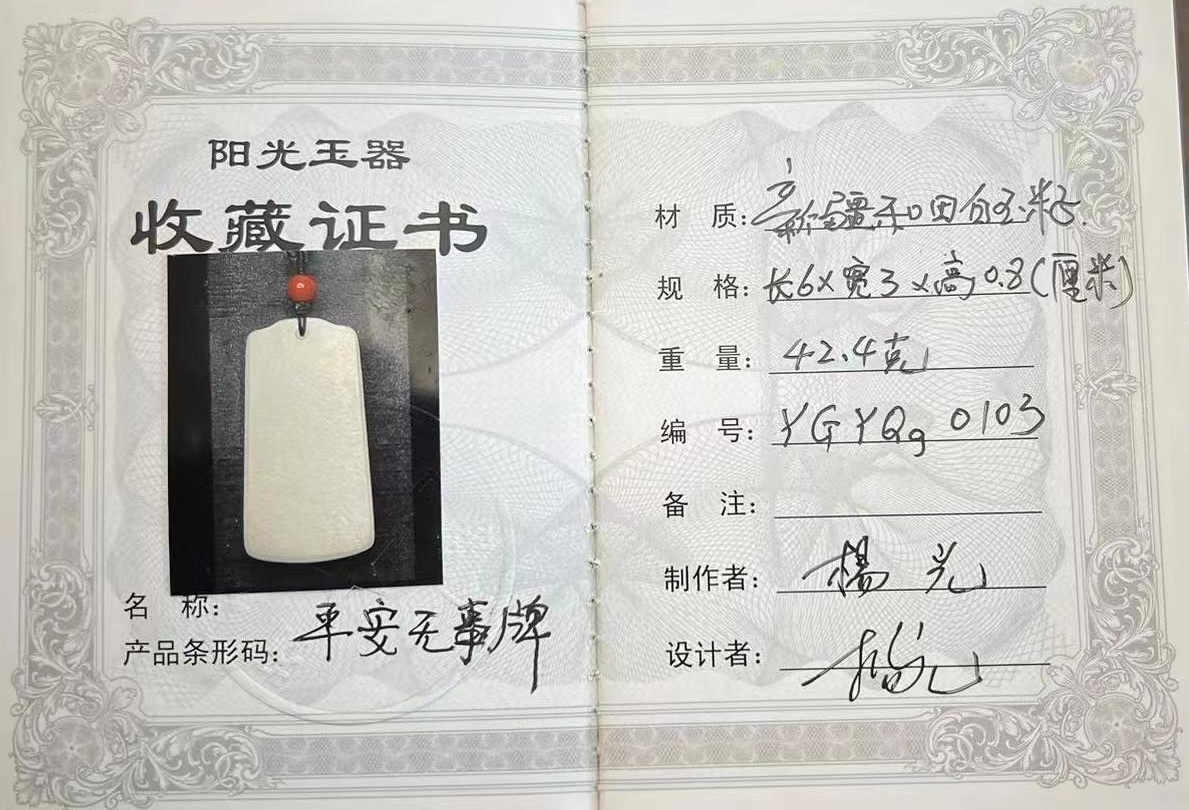 阳光玉器
收藏证书
名 称：
产品条形码：平安无事牌
材 质：新疆和田白玉籽
规 格：长6×宽3×高0.8（厘米）
重 量：42.4克
编 号：YGYQg0103
备 注：
制作者：楊光
设计者：楊光